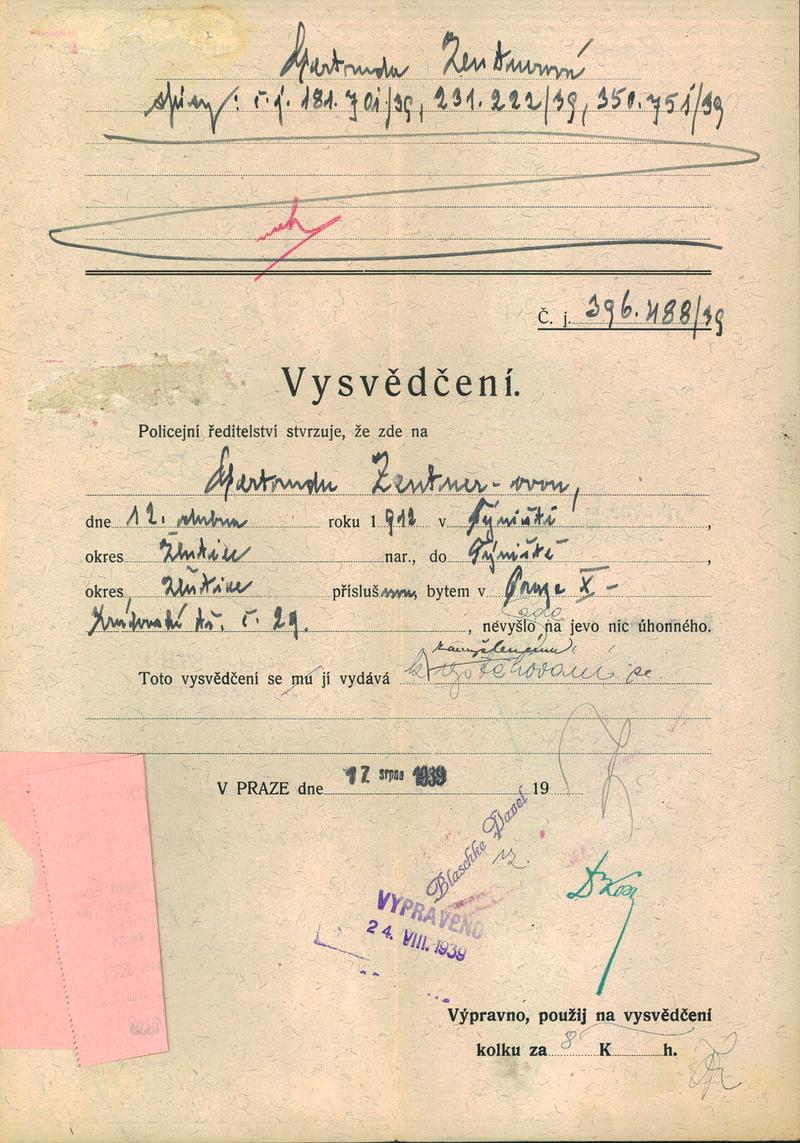 Gertruda Zentnerová
spisy: č. j. 181.701/39, 231.222/39, 350.751/39
Č. j. 396.488/39
Vysvědčení.
Policejní ředitelství stvrzuje, že zde na
Gertrudu Zentner-ovou,
dne 12. dubna roku 1912 v Týništi,
okres Žlutice nar., do Týniště,
okres Žlutice příslušnou, bytem v Praze X -
Královská tř. č. 29. , nevyšlo na jevo nic úhonného.
zamýšlenému
Toto vysvědčení se mu jí vydává k vystěhování se.
V PRAZE dne 17. srpna 1939 19
Blaschke Pavel
VYPRAVENO
24. VIII. 1939
Výpravno, použij na vysvědčení
kolku za 8 K h.